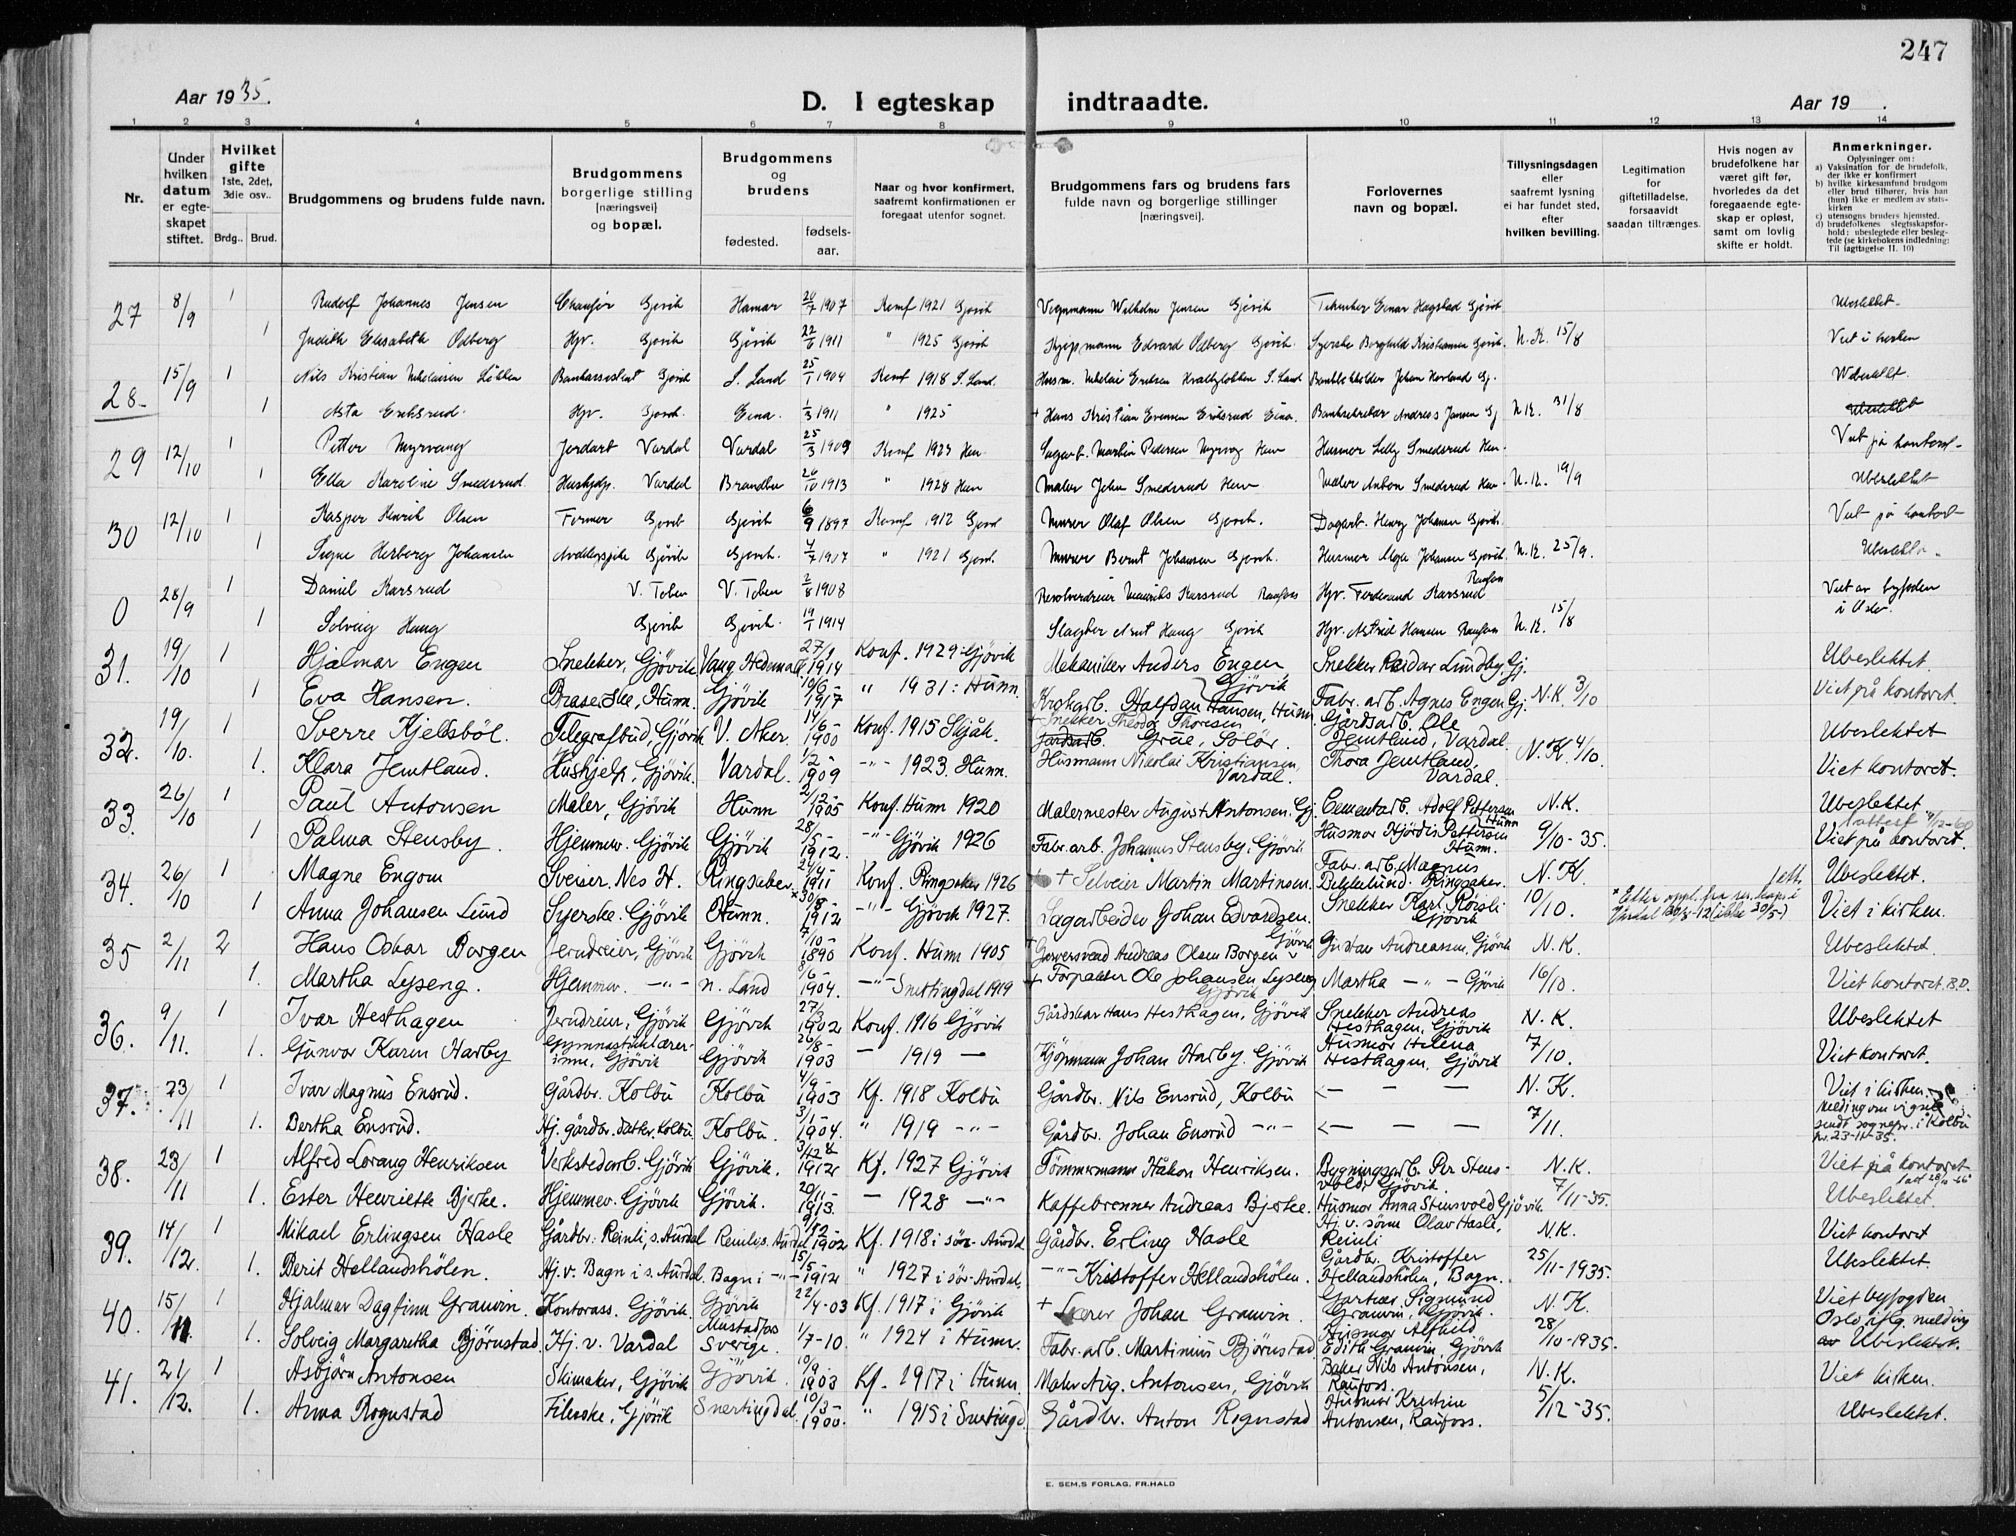 247
Aar 1935.
D. I egteskap indtraadte.
Aar 19 .
1 2 3 4 5 6 7 8 9 10 11 12 13 14
Nr.
Under hvilken datum er egteskapet stiftet.
Hvilket gifte 1ste, 2det, 3die osv..
Brdg.. Brud.
Brudgommens og brudens fulde navn.
Brudgommens borgerlige stilling [næringsvei] og bopæl.
Brudgommens og brudens
fødested.
fødsels-aar.
Naar og hvor konfirmert, saafremt konfirmationen er foregaat utenfor sognet.
Brudgommens fars og brudens fars fulde navn og borgerlige stillinger [næringsvei].
Forlovernes navn og bopæl.
Tillysningsdagen eller saafremt lysning ei har fundet sted, efter hvilken bevilling.
Legitimation for giftetilladelse, forsaavidt saadan tiltrænges.
Hvis nogen av brudefolkene har været gift før, hvorledes da det foregaaende egteskap er opløst, samt om lovlig skifte er holdt.
Anmerkninger.
Oplysninger om:
a) Vaksination for de brudefolk, der ikke er konfirmert
b) hvilke kirkesamfund brudgom eller brud tilhører, hvis han (hun) ikke er medlem av statskirken
c) utensogns bruders hjemsted.
d) brudefolkenes slegtskapsforhold; ubeslegtede eller beslegtede (se kirkebokens indledning: Til iagttagelse II. 10)
27 8/9 1 Rudolf Johannes Jensen Chauffør Gjøvik Hamar 1907 Konf 1921 Gjøvik Wilhelm Jensen Gjøvik Einar Hagstad Gjøvik Ubeslektet
1 Judith Elisabeth Ødberg Hjv. Gjøvik Gjøvik 22/6 1911 " 1925 Gjøvik Kjøpmann Edvard Ødberg Gjøvik Syerske Borghild Kristiansen Gjøvik N.K. 15/8 Viet i kirken
28 15/9 1 Nils Kristian Nikolaisen Løkken Bankassistent Gjøvik S. Land 25/1 1904 Konf 1918 S. Land Husm. Nikolai Eriksen S. Land Johan Gj. Ubeslektet
1 Asta Eriksrud Hjv. Gjøvik Eina 1/3 1911 " 1925 + Hans Kristian Evensen Eriksrud Eina Banksekretær Andreas Jensen Gj N.K. 31/8 Ubeslektet
29 12/10 1 Petter Myrvang Jordarb Vardal Vardal 25/3 1909 Konf 1923 Hun Sagarb. Martin Pedersen Myrvang Hun Husmor Lilly Smedsrud Hun Viet på kontoret
1 Ella Karoline Smedsrud Hushjelp Vardal Brandbu 26/10 1913 " 1928 Hun Maler John Smedsrud Hun Maler Anton Smedsrud Hun N.K. 19/9 Ubeslektet
30 12/10 1 Kasper Henrik Olsen Former Gjøvik Gjøvik 6/9 1897 Konf 1912 Gjøvik Murer Olaf Olsen Gjøvik Dagarb. Henry Johansen Gjøvik Viet på kontoret
1 Signe Herborg Johansen Gjøvik Gjøvik 4/7 1907 " 1921 Gjøvik Murer Bernt Johansen Gjøvik Husmor Johansen Gjøvik N.K. 25/9. Ubeslektet
0 28/9 1 Daniel Karsrud V. Toten V. Toten 2/8 1908 Revolverdreier Karsrud Raufoss Hjv. Ferdinand Karsrud Raufoss Viet av byfogden i Oslo
1 Solveig Haug Gjøvik Gjøvik 19/1 1914 Slagter Arnt Haug Gjøvik Hjv. Astrid Hansen Raufoss N.K. 15/8
31. 19/10 1 Hjalmar Engen Snekker, Gjøvik Vang Hedemark 1914 Konf. 1929 Gjøvik Mekaniker Anders Engen Gjøvik Snekker Reidar Lundby, Gj. Ubeslektet
1 Eva Hansen. Gjøvik 10/6 - 1917 " 1931: Hunn. Halfdan Hansen, Hunn. Fabr. arb. Agnes Engen Gj. N.K. 3/10 Viet på kontoret.
32. 19/10. 1 Sverre Kjelsbøl. Telegrafbud, Gjøvik V. Aker. 14/6 - 1900 Konf. 1915 Skjåk + Snekker Theodor Thoresen Grue, Solør. Gårdsarb. Ole Jemtland, Vardal. Ubeslektet
1. Klara Jemtland. Hushjelp, Gjøvik. Vardal. 1/2 - 1909 -"- 1923. Hunn. Husmann Nikolai Kristiansen, Vardal. Thora Jemtland, Vardal. N.K. 4/10. Viet kontoret.
33. 26/10 1 Paul Antonsen Maler, Gjøvik Hunn 2/12 - 1905 Konf. Hunn 1920 Malermester August Antonsen, Gj. Cementarb. Adolf Pettersen Hunn N.K. Ubeslektet
1 Palma Stensby. Hjemmev. Gjøvik Gjøvik 28/5 - 1912. -"- Gjøvik 1926 Fabr. arb. Johannes Stensby, Gjøvik Husmor Hjørdis Pettersen Hunn. 9/10-35. Viet på kontoret.
34. 26/10 1 Magne Engom Sveiser. Nes H. Ringsaker 24/4 - 1911 Konf. Ringsaker 1926 + Selveier Martin Martinsen. Fabr. arb. Magnus Dekkerlund. Ringsaker. N.K. Ubeslektet.
1 Anna Johansen Lund Syerske. Gjøvik Hunn. × 30/8 - 1912 -"- Gjøvik 1927. Sagarbeider Johan Edvardsen. Gjøvik Snekker Karl Roisli Gjøvik 10/10. × Etter oppl. fra Vardal 30/8-12 (ikke 30/5-) Viet i kirken.
35 2/11 2 Hans Oskar Borgen Jerndreier, Gjøvik Gjøvik 7/10 - 1890 Konf. Hunn 1905 + Garversvend Andreas Olsen Borgen Gustav Andreassen, Gjøvik N.K. Ubeslektet.
1. Martha Lyseng. Hjemmev. -"- n. Land 8/6 - 1904. -"- Snertingdal 1919 + Forpakter Ole Johansen Lyseng Gjøvik Martha -"- Gjøvik 16/10. Viet kontoret. B.D.
36. 9/11. 1 Ivar Hesthagen Jerndreier, Gjøvik Gjøvik 27/3 1902 Konf. 1916 Gjøvik Gårdskar Hans Hesthagen, Gjøvik Snekker Andreas Hesthagen, Gjøvik N.K. Ubeslektet
1. Gunvor Karen Harby Gymnastiklærerinne, Gjøvik Gjøvik 26/8 - 1903 — 1919 — Kjøpmann Johan Harby. Gjøvik Husmor Helena Hesthagen, Gjøvik 7/10. Viet kontoret.
37. 23/11 1 Ivar Magnus Ensrud. Gårdbr. Kolbu Kolbu 4/9 - 1903 Kf. 1918 Kolbu Gårdbr. Nils Ensrud, Kolbu — — — N.K. Viet i kirken.
1. Bertha Ensrud. Hj. gårdbr. datter. Kolbu. Kolbu. 3/1 - 1904. " 1919 -"- Gårdbr. Johan Ensrud -"- — — — 7/11. Melding om vigsel sendt sognepr. i Kolbu nr. 23-11-35.
38. 23/11 1 Alfred Lorang Henriksen Verkstedarb. Gjøvik Gjøvik. 3/12 1912 Kf. 1927 Gjøvik Tømmermann Håkon Henriksen. Bygningsarb. Per Stensvold. Gjøvik N.K. Viet på kontoret
1. Ester Henriette Bjerke. Hjemmev. Gjøvik Gjøvik. 20/11 - 1913. — 1928 -"- Kaffebrenner Andreas Bjerke. Husmor Anna Stensvold Gjøvik 7/11-35. Ubeslektet.
39. 14/12. 1 Mikael Erlingsen Hasle Gårdbr. Reinli, s. Aurdal Reinli s. Aurdal 1902 Kf. 1918 i sør-Aurdal Gårdbr. Erling Hasle Hj. v. sønn Olav Hasle, Reinli N.K. Viet kontoret
1. Berit Hellandshølen. Hj. v. Bagn i s. Aurdal. Bagn i -"- 15/5 - 1912 " 1927 i sør-Aurdal. -"- Kristoffer Hellandshølen. Gårdbr. Kristoffer Hellandshølen, Bagn. 25/11-1935. Ubeslektet.
40. 15/11. 1 Hjalmar Dagfinn Granvin. Kontorass. Gjøvik Gjøvik 22/4-03 Kf. 1917 i Gjøvik + Lærer Johan Granvin. Gartner Sigmund Granvin, Gjøvik. N.K. Viet byfogden
1. Solveig Margaretha Bjørnstad. Hj. v. Vardal Mustadfos Sverige. 1/7-10. " 1924 i Hunn. Fabr. arb. Martinius Bjørnstad Husmor Alfhild Edith Granvin, Gjøvik 28/10-1935. Oslo iflg. melding av Ubeslektet.
41. 21/12. 1 Asbjørn Antonsen Skimaker, Gjøvik Gjøvik. 10/9 1903 Kf. 1917 i Hunn. Maler Aug. Antonsen, Gjøvik Baker Nils Antonsen, Raufoss. N.K. Viet kirken.
1. Anna Rognstad Fileske, Gjøvik Snertingdal. 10/3 - 1900. " 1915 i Snertingd. Gårdbr. Anton Rognstad Husmor Kristine Antonsen, Raufoss. 5/12-35. Ubeslektet.
E. SEM,S FORLAG, FR.HALD